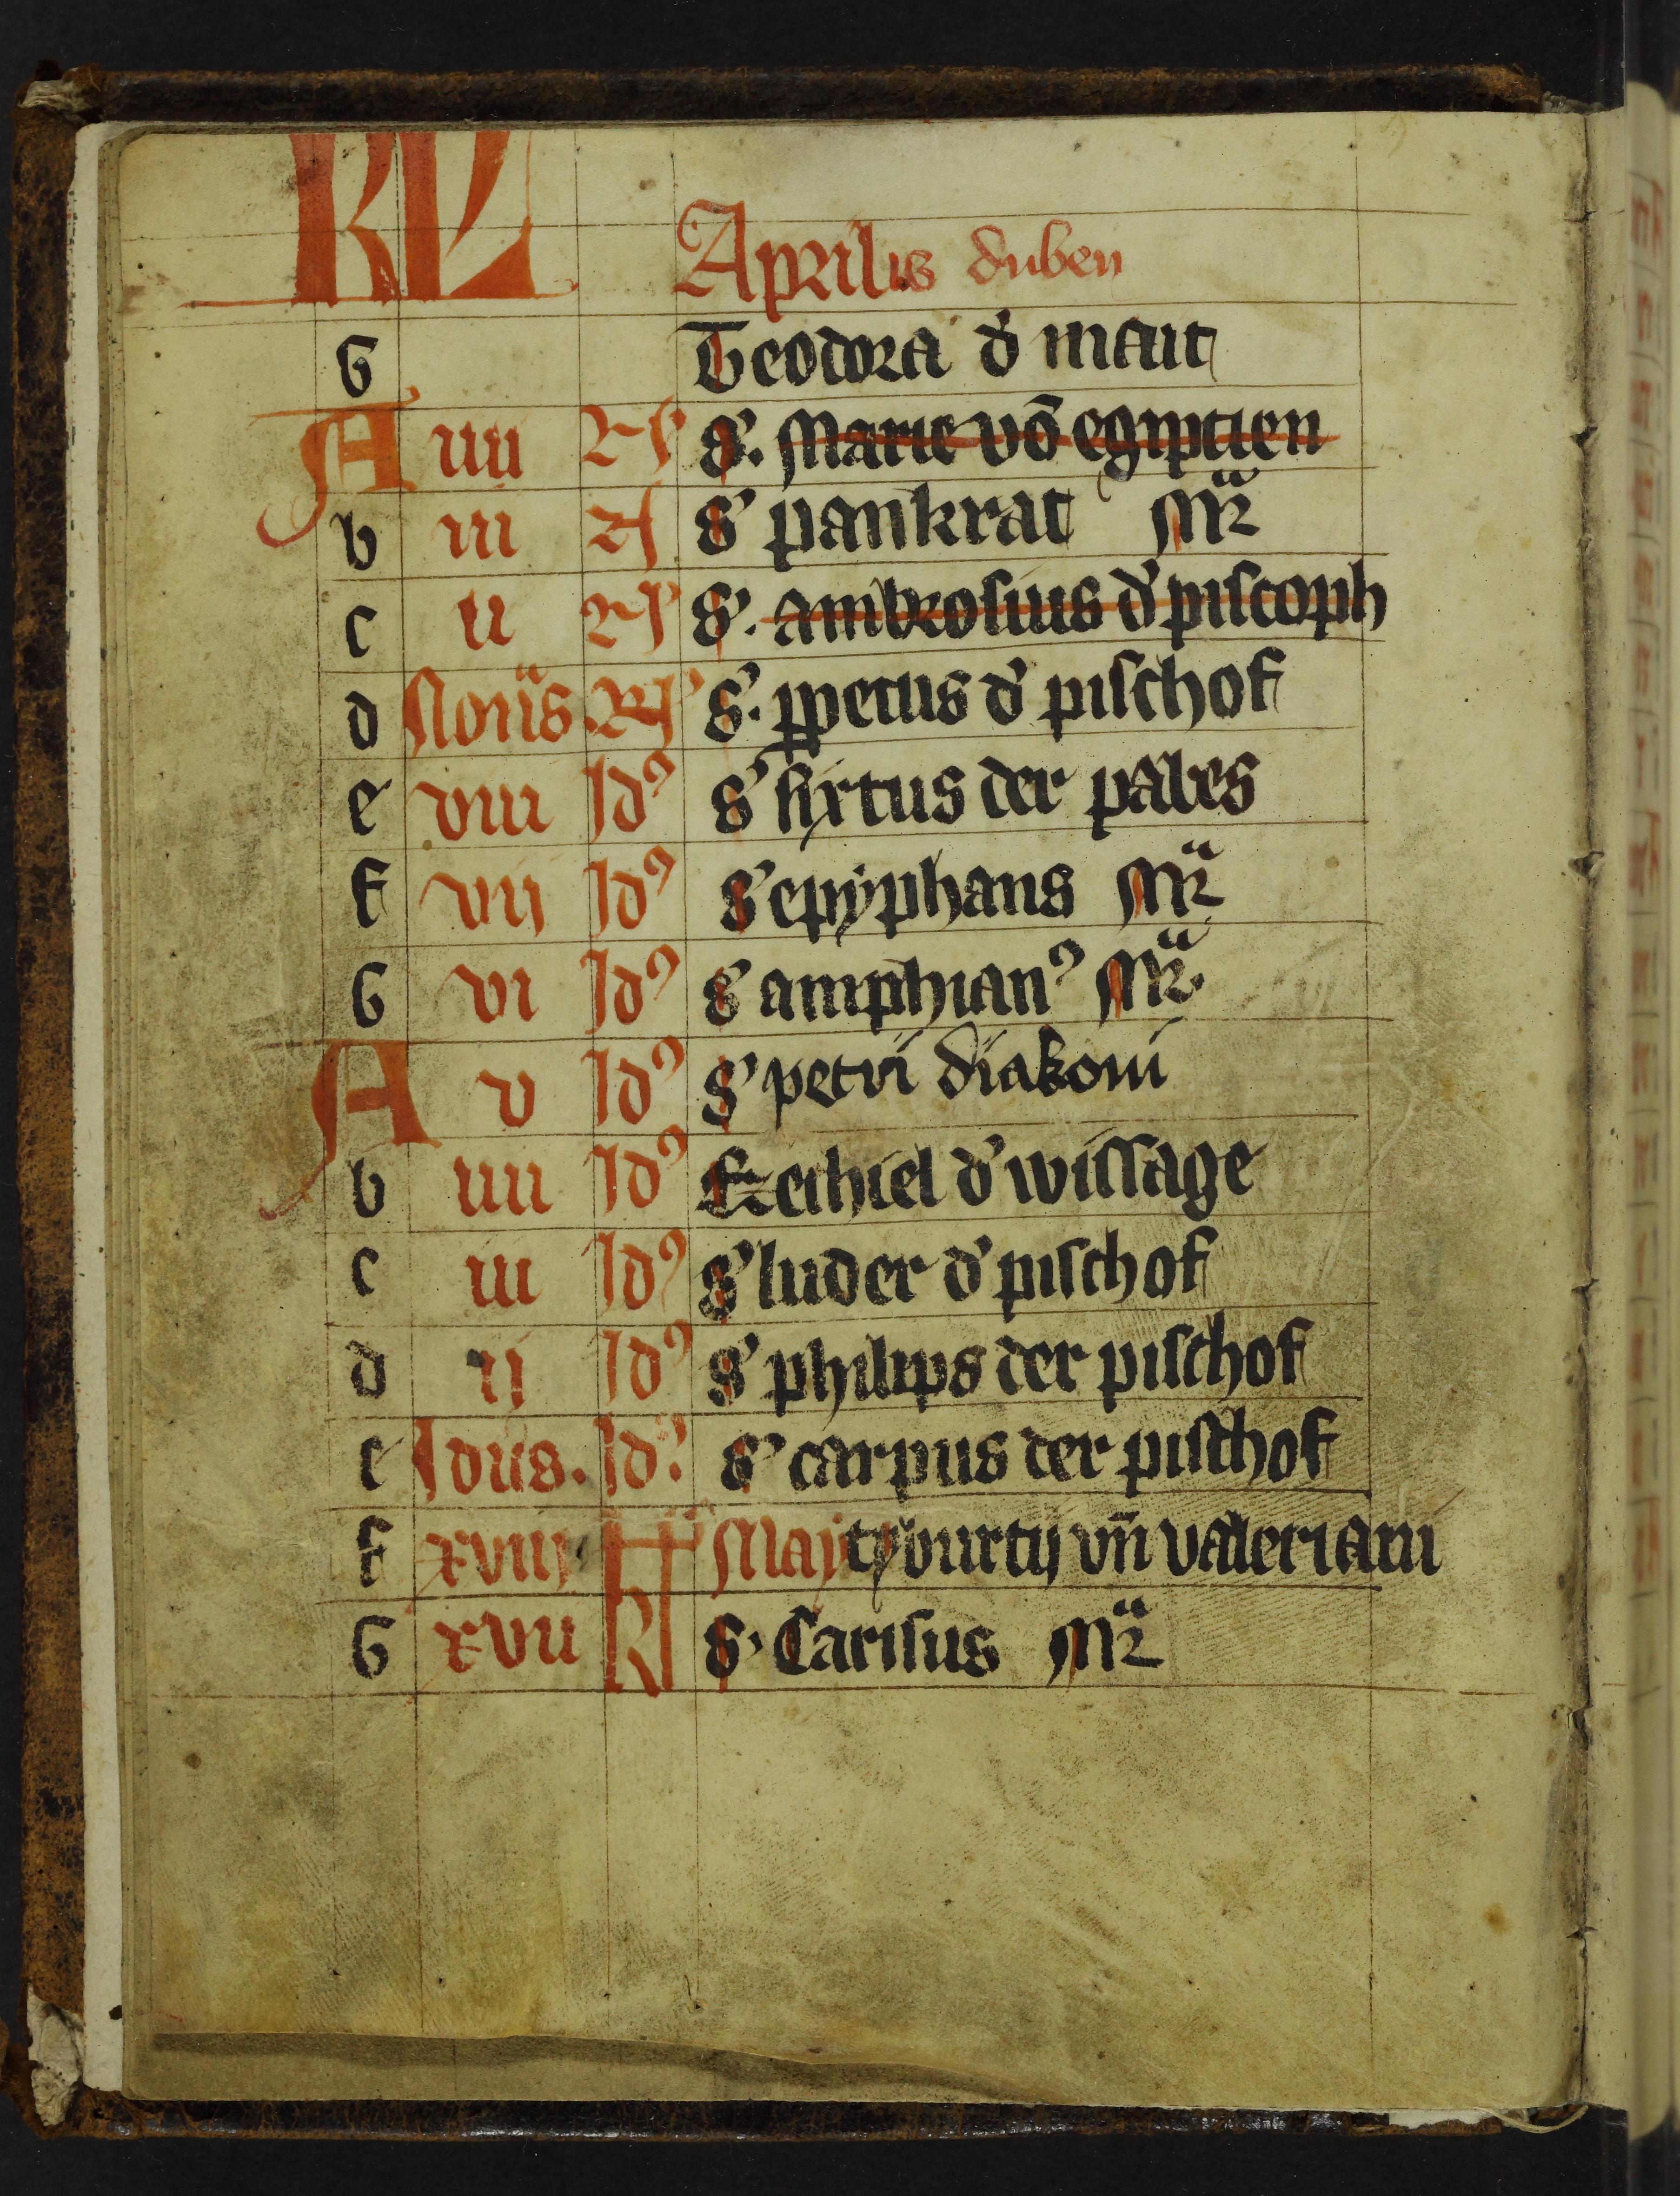 KL Aprilis duben
G Teodora d' mait
A iiii S. Marie vō egiptien
b iii S' pankrat Mr̄
c ii S. ambrosius d' piscoph
d Nonis S. ꝑpetus d' pischof
e viii Id9 S' sixtus der pabes
f vij Id9 S' epyphans Mr̄
G vi Id9 S' amphian9 Mr̄
A v Id9 S' petri diakoni
b iiii Id9 Ezechiel d' wissage
c iii Id9 S' luder d' pischof
d ij Id9 S' philips der pischof
e Idus. Id9 S' carpus der pischof
f xviij kl Maij tyburtij vn̄ valeriani
G xvii kl S. Carisus Mr̄